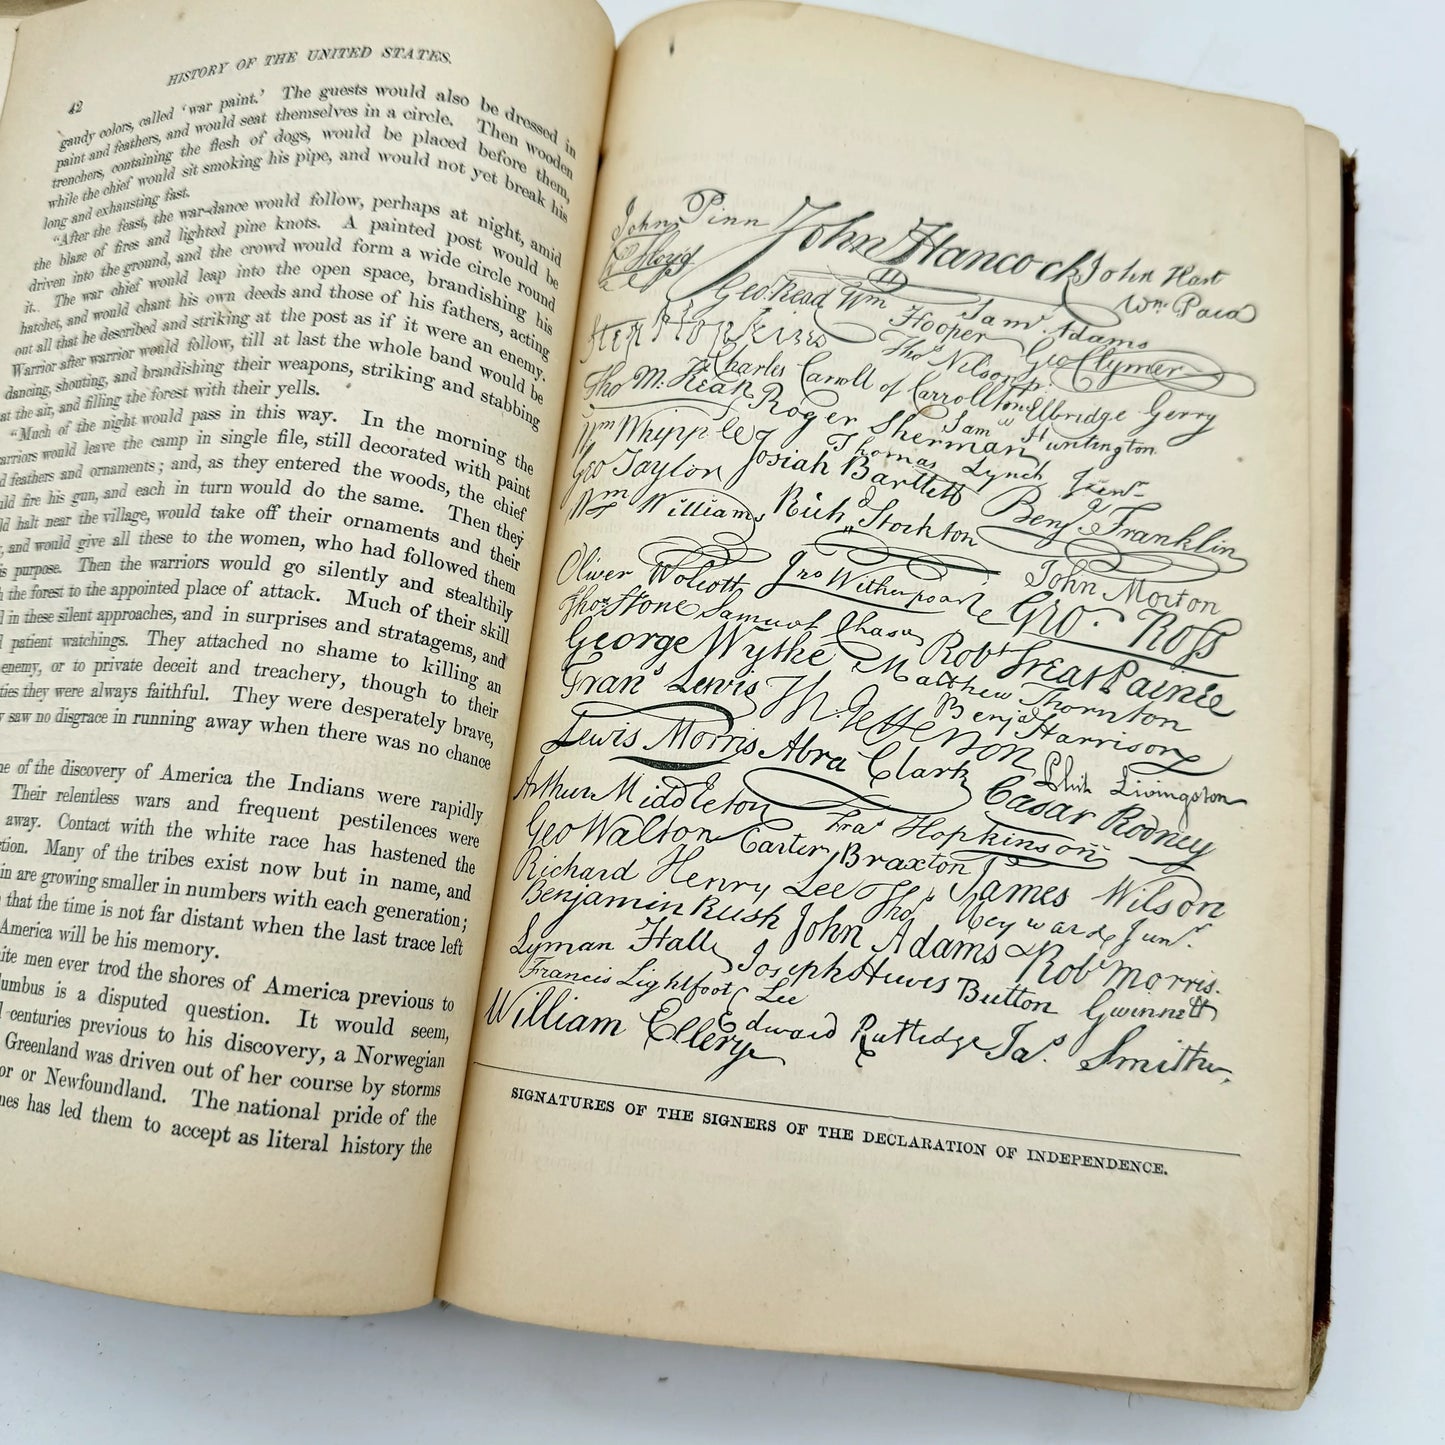 42
HISTORY OF THE UNITED STATES.
gaudy colors, called 'war paint.' The guests would also be dressed in
paint and feathers, and would seat themselves in a circle. Then wooden
trenchers, containing the flesh of dogs, would be placed before them,
while the chief would sit smoking his pipe, and would not yet break his
long and exhausting fast.
"After the feast, the war-dance would follow, perhaps at night, amid
the blaze of fires and lighted pine knots. A painted post would be
driven into the ground, and the crowd would form a wide circle round
it. The war chief would leap into the open space, brandishing his
hatchet, and would chant his own deeds and those of his fathers, acting
out all that he described and striking at the post as if it were an enemy.
Warrior after warrior would follow, till at last the whole band would be
dancing, shouting, and brandishing their weapons, striking and stabbing
at the air, and filling the forest with their yells.
"Much of the night would pass in this way. In the morning the
arriors would leave the camp in single file, still decorated with paint
d feathers and ornaments; and, as they entered the woods, the chief
uld fire his gun, and each in turn would do the same. Then they
ld halt near the village, would take off their ornaments and their
, and would give all these to the women, who had followed them
s purpose. Then the warriors would go silently and stealthily
h the forest to the appointed place of attack. Much of their skill
d in these silent approaches, and in surprises and stratagems, and
d patient watchings. They attached no shame to killing an
enemy, or to private deceit and treachery, though to their
ties they were always faithful. They were desperately brave,
y saw no disgrace in running away when there was no chance
me of the discovery of America the Indians were rapidly
Their relentless wars and frequent pestilences were
away. Contact with the white race has hastened the
ction. Many of the tribes exist now but in name, and
in are growing smaller in numbers with each generation;
that the time is not far distant when the last trace left
America will be his memory.
ite men ever trod the shores of America previous to
lumbus is a disputed question. It would seem,
l centuries previous to his discovery, a Norwegian
Greenland was driven out of her course by storms
or or Newfoundland. The national pride of the
nes has led them to accept as literal history the
John Penn John Hancock John Hart
Wm Floyd Geo. Read Wm Hooper Saml. Adams Wm Paca
Step Hopkins Thos Nelson jr. Geo Clymer
Charles Carroll of Carrollton Elbridge Gerry
Tho M. Kean Roger Sherman Saml Huntington
Wm Whipple Thomas Lynch Junr.
Geo Taylor Josiah Bartlett Benj. Franklin
Wm Williams Richd Stockton
Oliver Wolcott Jno Witherspoon John Morton
Thos Stone Samuel Chase Geo. Ross
George Wythe Robt Treat Paine
Frans Lewis Th. Jefferson Matthew Thornton
Benja Harrison
Lewis Morris Abra Clark Phil. Livingston
Arthur Middleton Fras Hopkinson Caesar Rodney
Geo Walton Carter Braxton James Wilson
Richard Henry Lee Thos Heyward Junr.
Benjamin Rush John Adams Robt Morris.
Lyman Hall Joseph Hewes Button Gwinnett
Francis Lightfoot Lee
William Ellery Edward Rutledge Jas. Smith
SIGNATURES OF THE SIGNERS OF THE DECLARATION OF INDEPENDENCE.